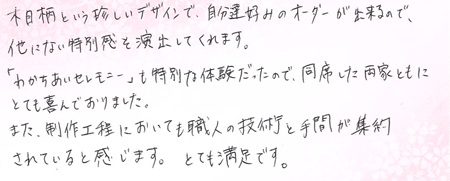 木目柄という珍しいデザインで、自分達好みのオーダーが出来るので、
他にない特別感を演出してくれます。
「わかちあいセレモニー」も特別な体験だったので、同席した両家ともに
とても喜んでおりました。
また、制作工程においても職人の技術と手間が集約
されていると感じます。とても満足です。